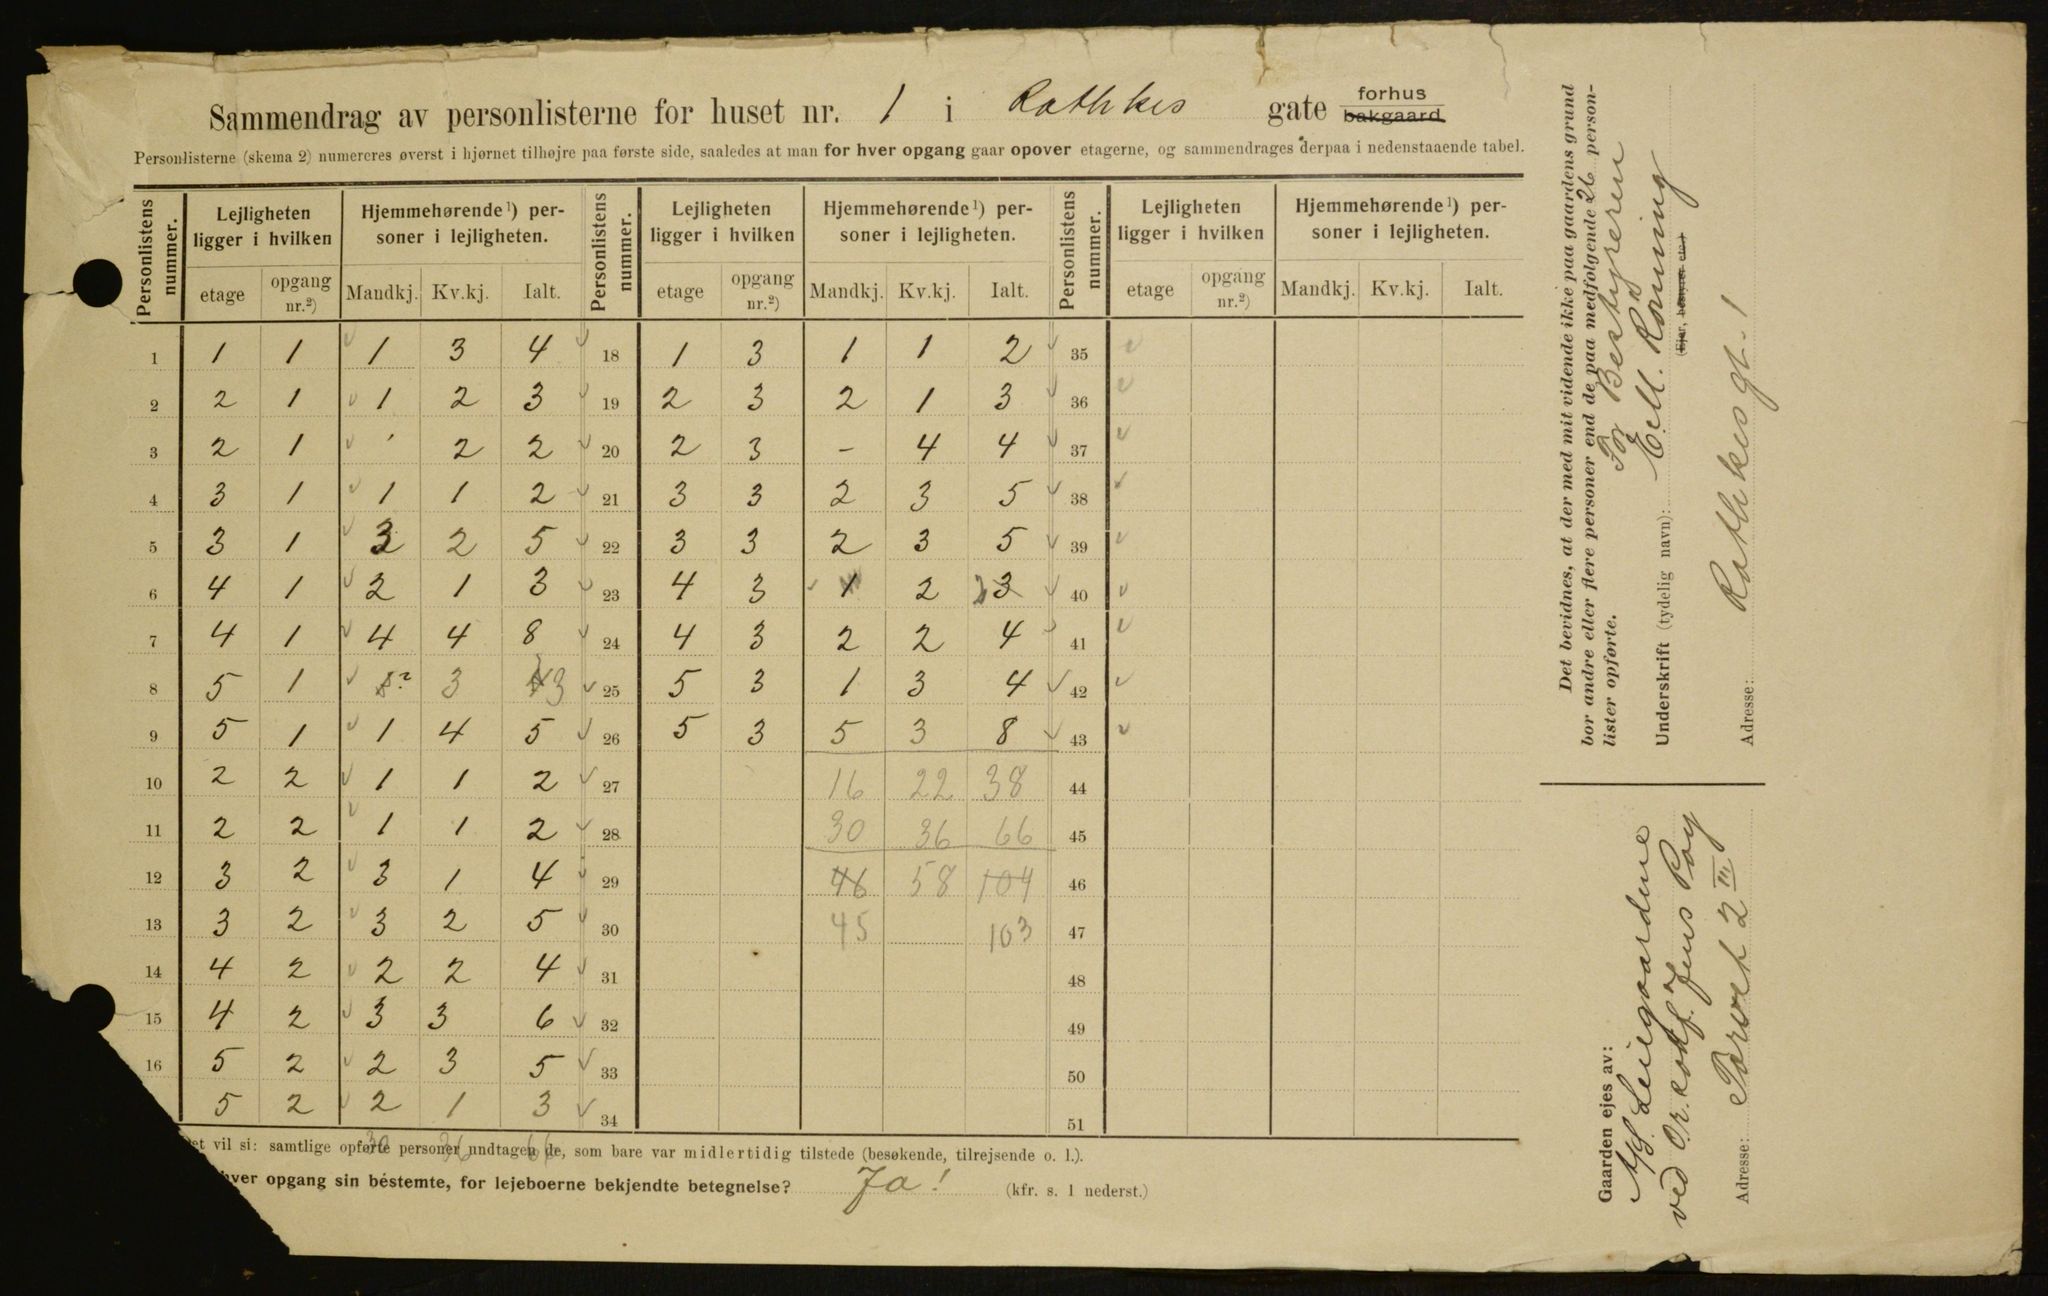 Sammendrag av personlisterne for huset nr. 1 i Rathkes gate forhus bakgaard
Personlisterne (skema 2) numereres øverst i hjørnet tilhøjre paa første side, saaledes at man for hver opgang gaar opover etagerne, og sammendrages derpaa i nedenstaaende tabel.
Personlistens nummer. Lejligheten ligger i hvilken Hjemmehørende ¹) personer i lejligheten. Personlistens nummer. Lejligheten ligger i hvilken Hjemmehørende ¹) personer i lejligheten. Personlistens nummer. Lejligheten ligger i hvilken Hjemmehørende ¹) personer i lejligheten.
etage opgang nr.²) Mandkj. Kv.kj. Ialt. etage opgang nr.²) Mandkj. Kv.kj. Ialt. etage opgang nr.²) Mandkj. Kv.kj. Ialt.
1 1 1 1 3 4 18 1 3 1 1 2 35
2 2 1 1 2 3 19 2 3 2 1 3 36
3 2 1 ' 2 2 20 2 3 – 4 4 37
4 3 1 1 1 2 21 3 3 2 3 5 38
5 3 1 3 2 5 22 3 3 2 3 5 39
6 4 1 2 1 3 23 4 3 1 2 2 3 40
7 4 1 4 4 8 24 4 3 2 2 4 41
8 5 1 3 3 25 5 3 1 3 4 42
9 5 1 1 4 5 26 5 3 5 3 8 43
10 2 2 1 1 2 27 16 22 38 44
11 2 2 1 1 2 28 30 36 66 45
12 3 2 3 1 4 29 46 58 104 46
13 3 2 3 2 5 30 45 103 47
14 4 2 2 2 4 31 48
15 4 2 3 3 6 32 49
16 5 2 2 3 5 33 50
5 2 2 1 3 34 51
30 36 66
et vil si: samtlige opførte personer undtagen de, som bare var midlertidig tilstede (besøkende, tilrejsende o. l.).
hver opgang sin bestemte, for lejeboerne bekjendte betegnelse? Ja! (kfr. s. 1 nederst.)
Det bevidnes, at der med mit vidende ikke paa gaardens grund
bor andre eller flere personer end de paa medfølgende 26 person-
lister opførte.
For Bestyreren
Underskrift (tydelig navn): E. M. Rönning
(Ejer, bestyrer etc.)
Adresse: Rathkesgt. 1
Gaarden ejes av:
A/S. Leiegaardene
ved Or. Jens
Adresse: 2 III